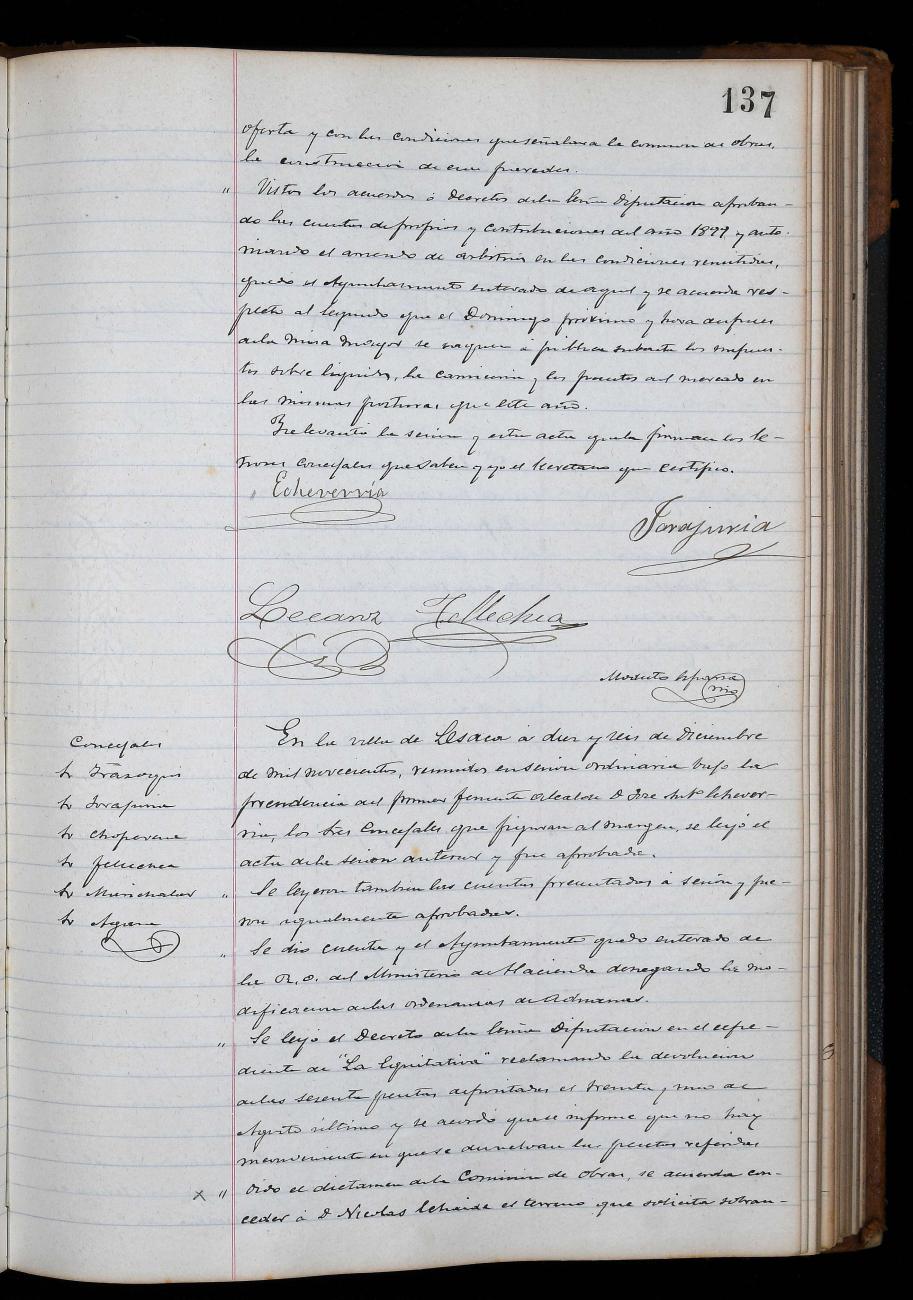 137
oferta y con las condiciones que señalara la comision de obras,
la construccion de esas paredes.
" Vistos los acuerdos ó Decretos de la Excma Diputacion aproban-
do las cuentas de propios y contribuciones del año 1899 y auto-
rizando el arriendo de arbitrios en las condiciones remitidas,
quedó el Ayuntamiento enterado de aquel y se acuerda res-
pecto al segundo que el Domingo próximo y hora despues
de la misa mayor se saquen á pública subasta los impues-
tos sobre líquidos, la carniceria y los puestos del mercado en
las mismas posturas que este año.
Se levantó la sesion y esta acta que la firman los Se-
ñores concejales que saben y yo el Secretario que certifico.
Echeverria
Tarajuria
Lecaroz Tellechea
Modesto Esparza
Concejales
Sr Irazoqui
Sr
Sr Choperena
Sr Tellechea
Sr Marichalar
Sr
En la villa de Lesaca á diez y seis de Diciembre
de mil novecientos, reunidos en sesion ordinaria bajo la
presidencia del primer Teniente Alcalde D. José Mª Echever-
ria, los Sres Concejales que figuran al margen, se leyó el
acta de la sesion anterior y fue aprobada.
" Se leyeron tambien las cuentas presentadas á sesion y fue-
ron igualmente aprobadas.
" Se dio cuenta y el Ayuntamiento quedó enterado de
la R.O. del Ministerio de Hacienda denegando la mo-
dificacion de las ordenanzas de Aduanas.
" Se leyó el Decreto de la Excma Diputacion en el espe-
diente de "La Equitativa" reclamando la devolucion
de las sesenta pesetas depositadas el treinta y uno de
Agosto último y se acordó que se informe que no hay
inconveniente en que se devuelvan las pesetas referidas
x " Oido el dictamen de la Comision de Obras, se acuerda con-
ceder á D Nicolas el terreno que solicita sobran-